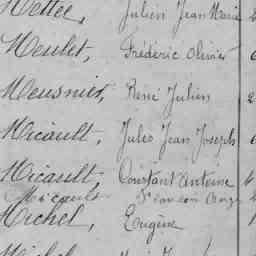 Mettée, Julien Jean Marie
Meulet, Frédéric Olivier
Meusnier, René Julien
Micault, Jules Jean Joseph
Micault, Constant Antoine
Micault
Michel, Eugène
Michel